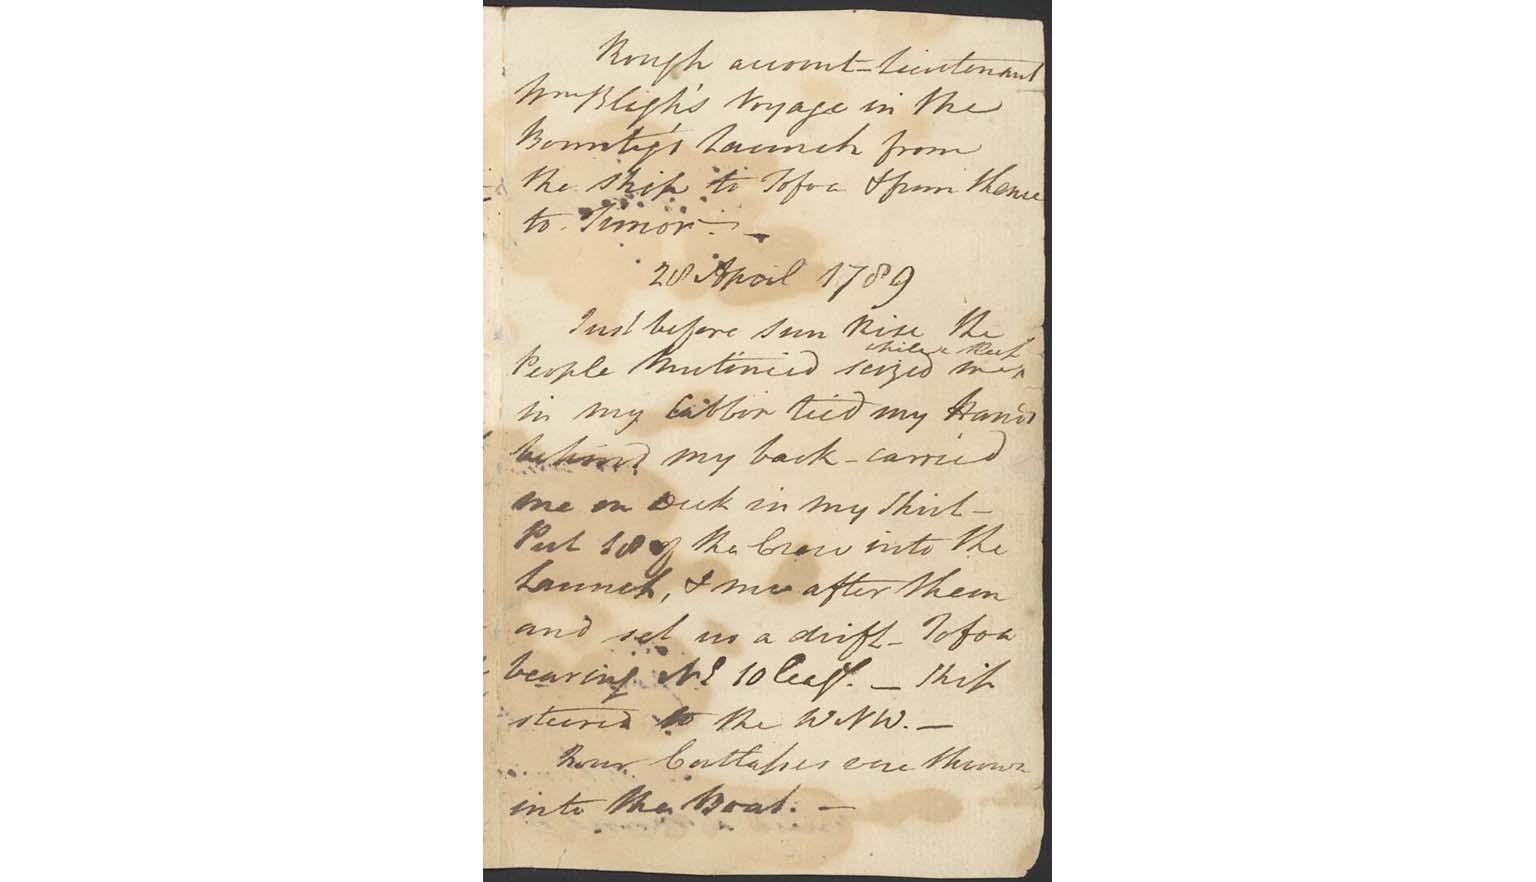 Rough account – Lieutenant
Wm Bligh's Voyage in the
Bounty's Launch from
the Ship to Tofoa & from thence
to Timor –
28 April 1789
Just before sun rise the
People Mutinied seized me
while asleep
in my Cabbin tied my Hands
behind my back – carried
me on Deck in my Shirt –
Put 18 of the Crew into the
Launch, & me after them
and set us a drift – Tofoa
bearing NE 10 leags. – Ship
steered to the WNW. –
Four Cutlasses were thrown
into the Boat. –